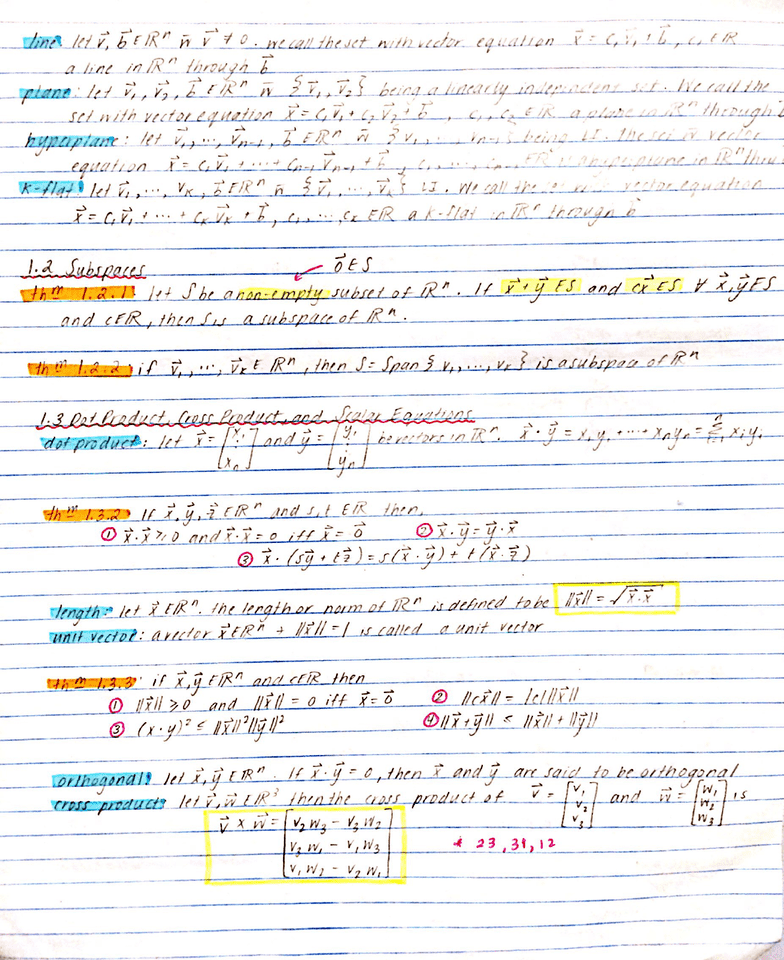 line: let v⃗, b⃗ ∈ ℝⁿ w̄ v⃗ ≠ 0. we call the set with vector equation x⃗ = c₁v⃗₁ + b⃗, c₁ ∈ ℝ
a line in ℝⁿ through b⃗
plane: let v⃗₁, v⃗₂, b⃗ ∈ ℝⁿ w̄ {v⃗₁, v⃗₂} being a linearly independent set. We call the
set with vector equation x⃗ = c₁v⃗₁ + c₂v⃗₂ + b⃗, c₁, c₂ ∈ ℝ a plane in ℝⁿ through b
hyperplane: let v⃗₁, ..., v⃗ₙ₋₁, b⃗ ∈ ℝⁿ w̄ {v₁, ..., vₙ₋₁} being LI. The set w̄ vector
equation x⃗ = c₁v⃗₁ + ... + cₙ₋₁v⃗ₙ₋₁ + b⃗, c₁, ..., cₙ₋₁ ∈ ℝ hyperplane in ℝⁿ
k-flat: let v⃗₁, ..., vₖ, b⃗ ∈ ℝⁿ w̄ {v⃗₁, ..., v⃗ₖ} LI. We call the set vector equation
x⃗ = c₁v⃗₁ + ... + cₖv⃗ₖ + b⃗, c₁, ..., cₖ ∈ ℝ a k-flat in ℝⁿ through b⃗
1.2 Subspaces
0⃗ ∈ S
thᵐ 1.2.1: let S be a non-empty subset of ℝⁿ. If x⃗ + y⃗ ∈ S and cx⃗ ∈ S ∀ x⃗, y⃗ ∈ S
and c ∈ ℝ, then S is a subspace of ℝⁿ.
thᵐ 1.2.2: if v⃗₁, ..., v⃗ₖ ∈ ℝⁿ, then S = Span {v₁, ..., vₖ} is a subspace of ℝⁿ
1.3 Dot Product, Cross Product, and Scalar Equations
dot product: let x⃗ = [x₁ ⋮ xₙ] and y⃗ = [y₁ ⋮ yₙ] be vectors in ℝⁿ. x⃗ · y⃗ = x₁y₁ + ... + xₙyₙ = Σⁿᵢ₌₁ xᵢyᵢ
thᵐ 1.3.2: If x⃗, y⃗, z⃗ ∈ ℝⁿ and s, t ∈ ℝ then,
① x⃗ · x⃗ ≥ 0 and x⃗ · x⃗ = 0 iff x⃗ = 0⃗ ② x⃗ · y⃗ = y⃗ · x⃗
③ x⃗ · (sy⃗ + tz⃗) = s(x⃗ · y⃗) + t(x⃗ · z⃗)
length: let x⃗ ∈ ℝⁿ. the length or norm of ℝⁿ is defined to be ||x⃗|| = √x⃗ · x⃗
unit vector: a vector x⃗ ∈ ℝⁿ + ||x⃗|| = 1 is called a unit vector
thᵐ 1.3.3: if x⃗, y⃗ ∈ ℝⁿ and c ∈ ℝ then
① ||x⃗|| ≥ 0 and ||x⃗|| = 0 iff x⃗ = 0⃗ ② ||cx⃗|| = |c| ||x⃗||
③ (x · y)² ≤ ||x⃗||² ||y⃗||² ④ ||x⃗ + y⃗|| ≤ ||x⃗|| + ||y⃗||
orthogonal: let x⃗, y⃗ ∈ ℝⁿ. If x⃗ · y⃗ = 0, then x⃗ and y⃗ are said to be orthogonal
cross product: let v⃗, w⃗ ∈ ℝ³ then the cross product of v⃗ = [v₁ v₂ v₃] and w⃗ = [w₁ w₂ w₃] is
v⃗ × w⃗ = [v₂w₃ - v₃w₂
v₃w₁ - v₁w₃
v₁w₂ - v₂w₁]
* 23, 31, 12